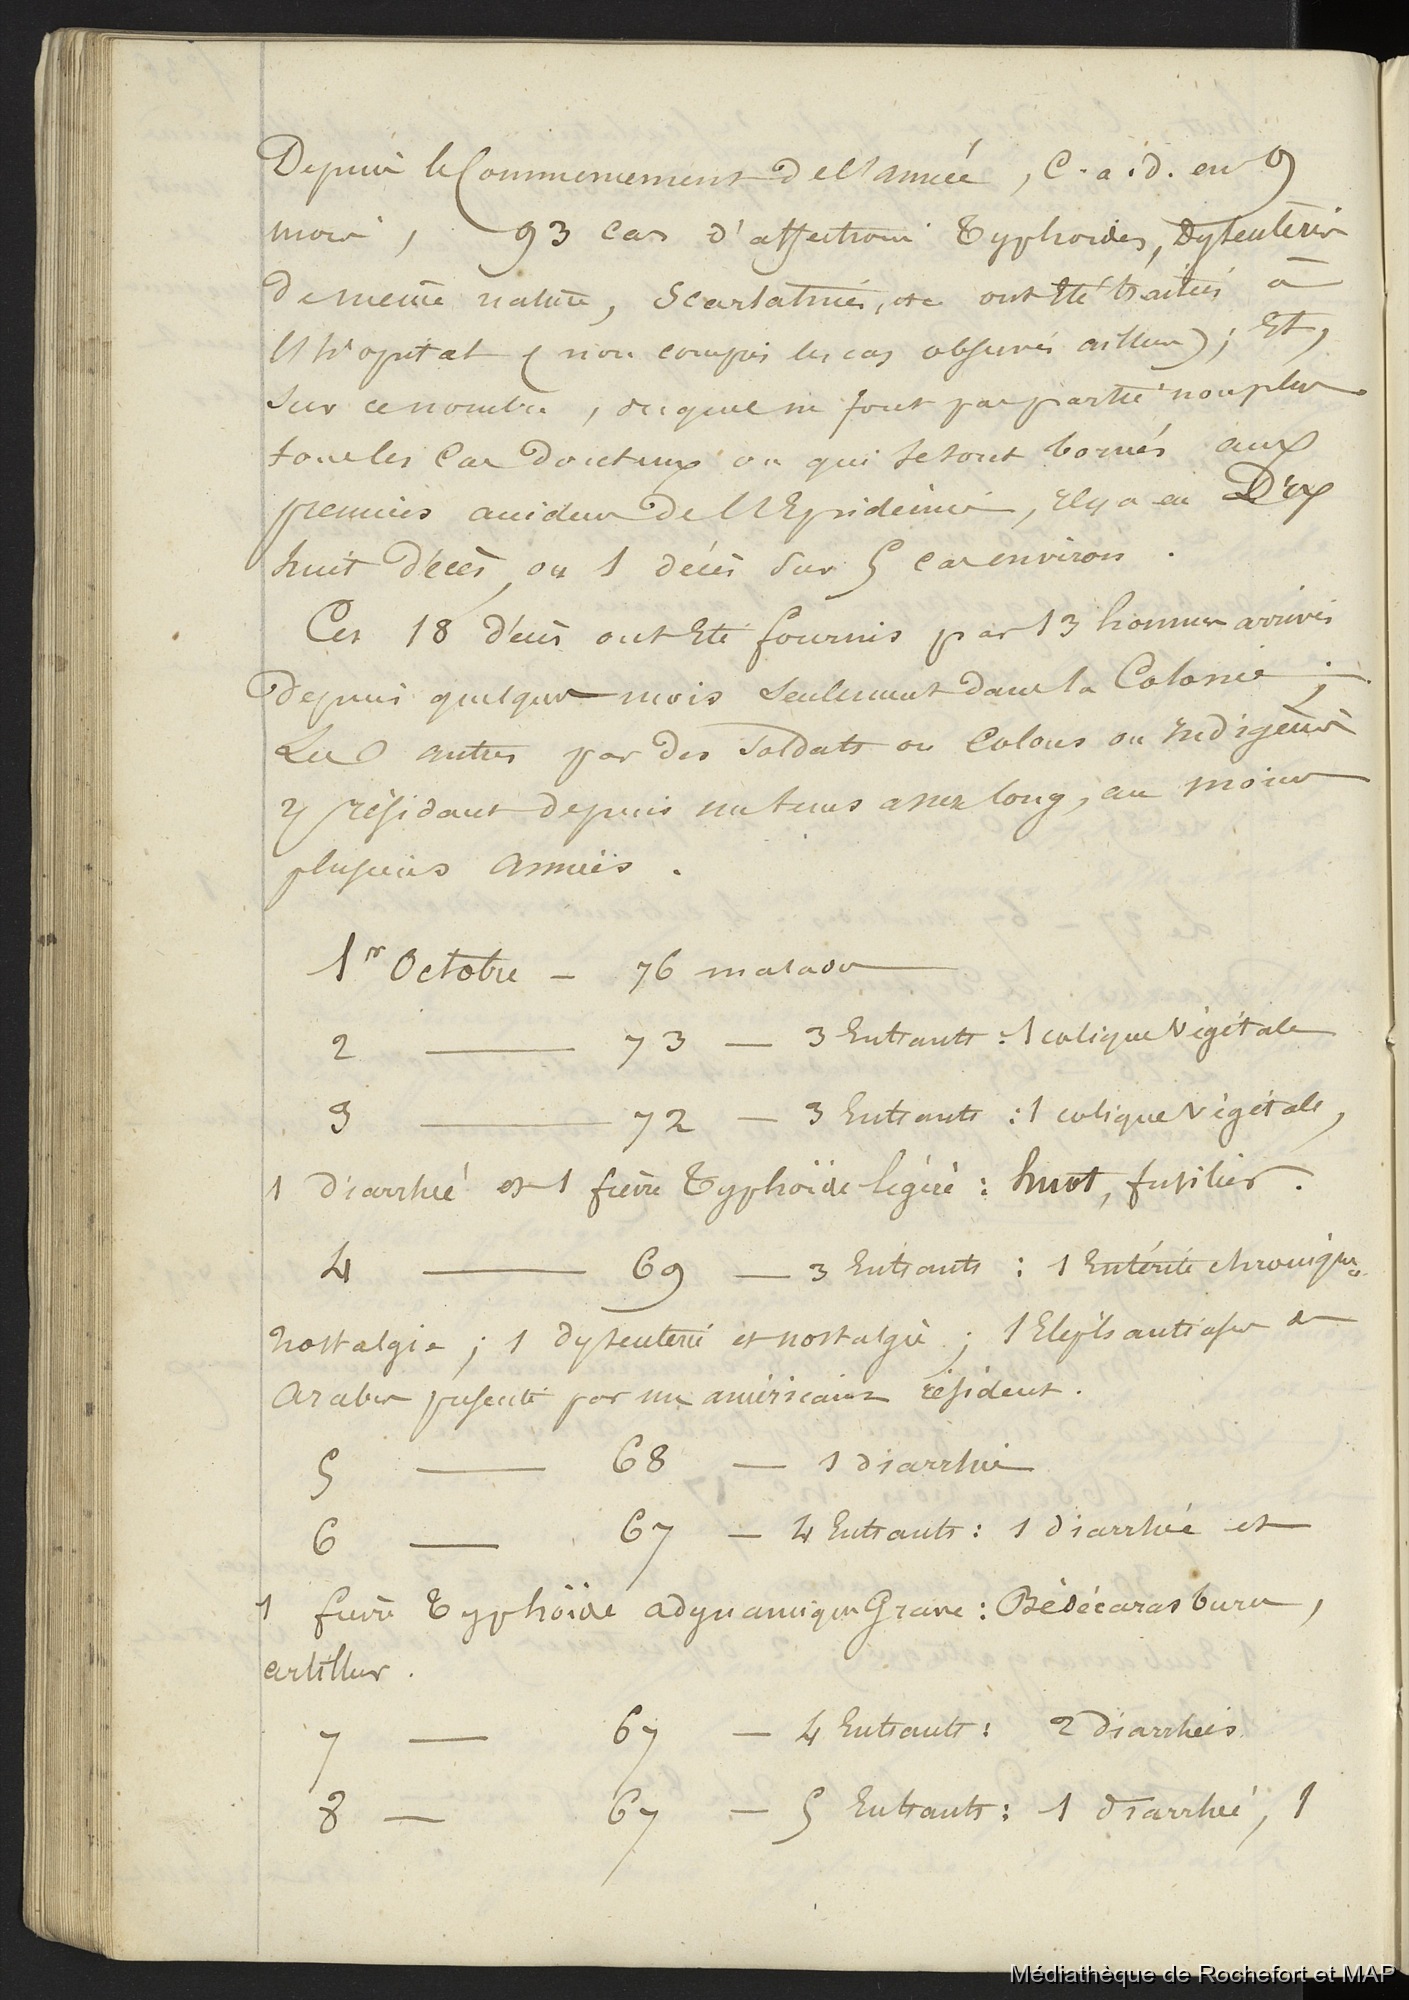 Depuis le Commencement de l'année, C. a. d. en 9
mois, 93 cas d'affections Typhoïdes, Dysenteries
de même nature, Scarlatines, etc ont été traités à
l'hôpital (non compris les cas observés ailleurs); Et,
sur ce nombre, duquel ne font pas partie non plus
tous les Cas douteux ou qui se sont bornés aux
premiers accidens de l'Epidémie, il y a eu Dix
huit décès, ou 1 décès sur 5 cas environ.
Ces 18 décès ont été fournis par 13 hommes arrivés
Depuis quelques mois seulement dans la Colonie;
Les autres par des soldats ou Colons ou Indigènes
y résidant depuis un tems assez long, au moins
plusieurs années.
1r Octobre - 76 malades
2 — 73 — 3 Entrants : 1 colique végétale
3 — 72 — 3 Entrants : 1 colique végétale,
1 diarrhée et 1 fièvre Typhoïde légère : huot, fusilier.
4 — 69 — 3 Entrants : 1 Entérite chronique
nostalgie ; 1 dysenterie et nostalgie ; 1 Elephantiasis des
arabes présenté par un américain résident.
5 — 68 — 1 diarrhée
6 — 67 — 4 Entrants : 1 diarrhée et
1 fièvre Typhoïde adynamique Grave : Bédécarasburu,
artilleur.
7 — 67 — 4 Entrants : 2 Diarrhées
8 — 67 — 5 Entrants : 1 diarrhée, 1
Médiathèque de Rochefort et MAP